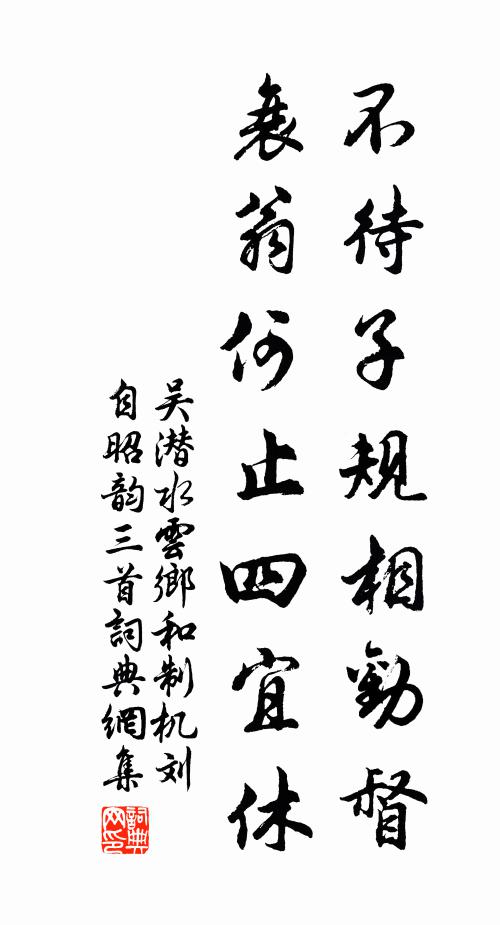 不待子规相勸督
衰翁何止四宜休
吴潜水雲鄉和制机刘
自昭韵三首詞典網集
詞典
网印